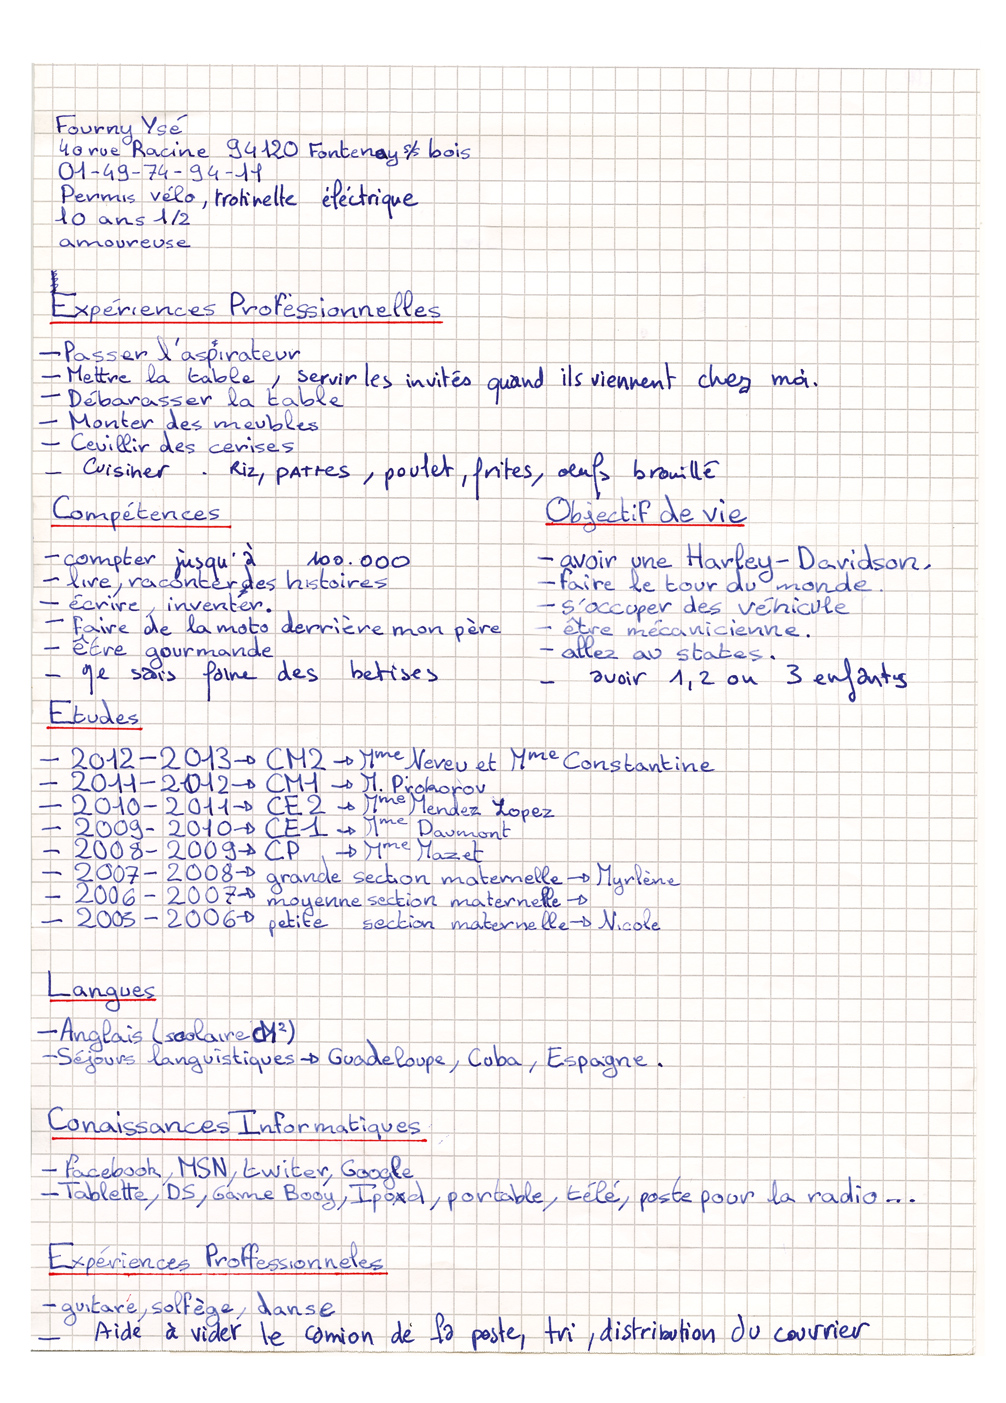 Fourny Ysé
40 rue Racine 94120 Fontenay s/s bois
01-49-74-94-11
Permis vélo, trotinette éléctrique
10 ans 1/2
amoureuse
Expériences Proféssionnelles
- Passer l'aspirateur
- Mettre la table, servir les invités quand ils viennent chez moi.
- Débarasser la table
- Monter des meubles
- Ceuillir des cerises
- Cuisiner. Riz, pattes, poulet, frites, oeufs brouillé
Compétences
- compter jusqu'à 100.000
- lire, raconter des histoires
- écrire, inventer.
- faire de la moto derrière mon père
- être gourmande
- ge sais faire des betises
Objectif de vie
- avoir une Harley-Davidson.
- faire le tour du monde.
- s'occuper des véhicule
- être mécanicienne.
- allez au states.
- avoir 1, 2 ou 3 enfants
Etudes
- 2012-2013→ CM2 → Mme Neveu et Mme Constantine
- 2011-2012→ CM1 → M. Prokorov
- 2010-2011→ CE2 → Mme Mendez Lopez
- 2009-2010→ CE1 → Mme Daumont
- 2008-2009→ CP → Mme Mazet
- 2007-2008→ grande section maternelle → Myrlène
- 2006-2007→ moyenne section maternelle →
- 2005-2006→ petite section maternelle → Nicole
Langues
- Anglais (scolaire CM2)
- Séjours languistiques → Guadeloupe, Cuba, Espagne.
Conaissances Informatiques
- facebook, MSN, twiter, Google
- Tablette, DS, Game Booy, Ipod, portable, télé, poste pour la radio...
Expériences Proffessionneles
- guitare, solfège, danse
- Aidé à vider le camion de la poste, tri, distribution du courrier